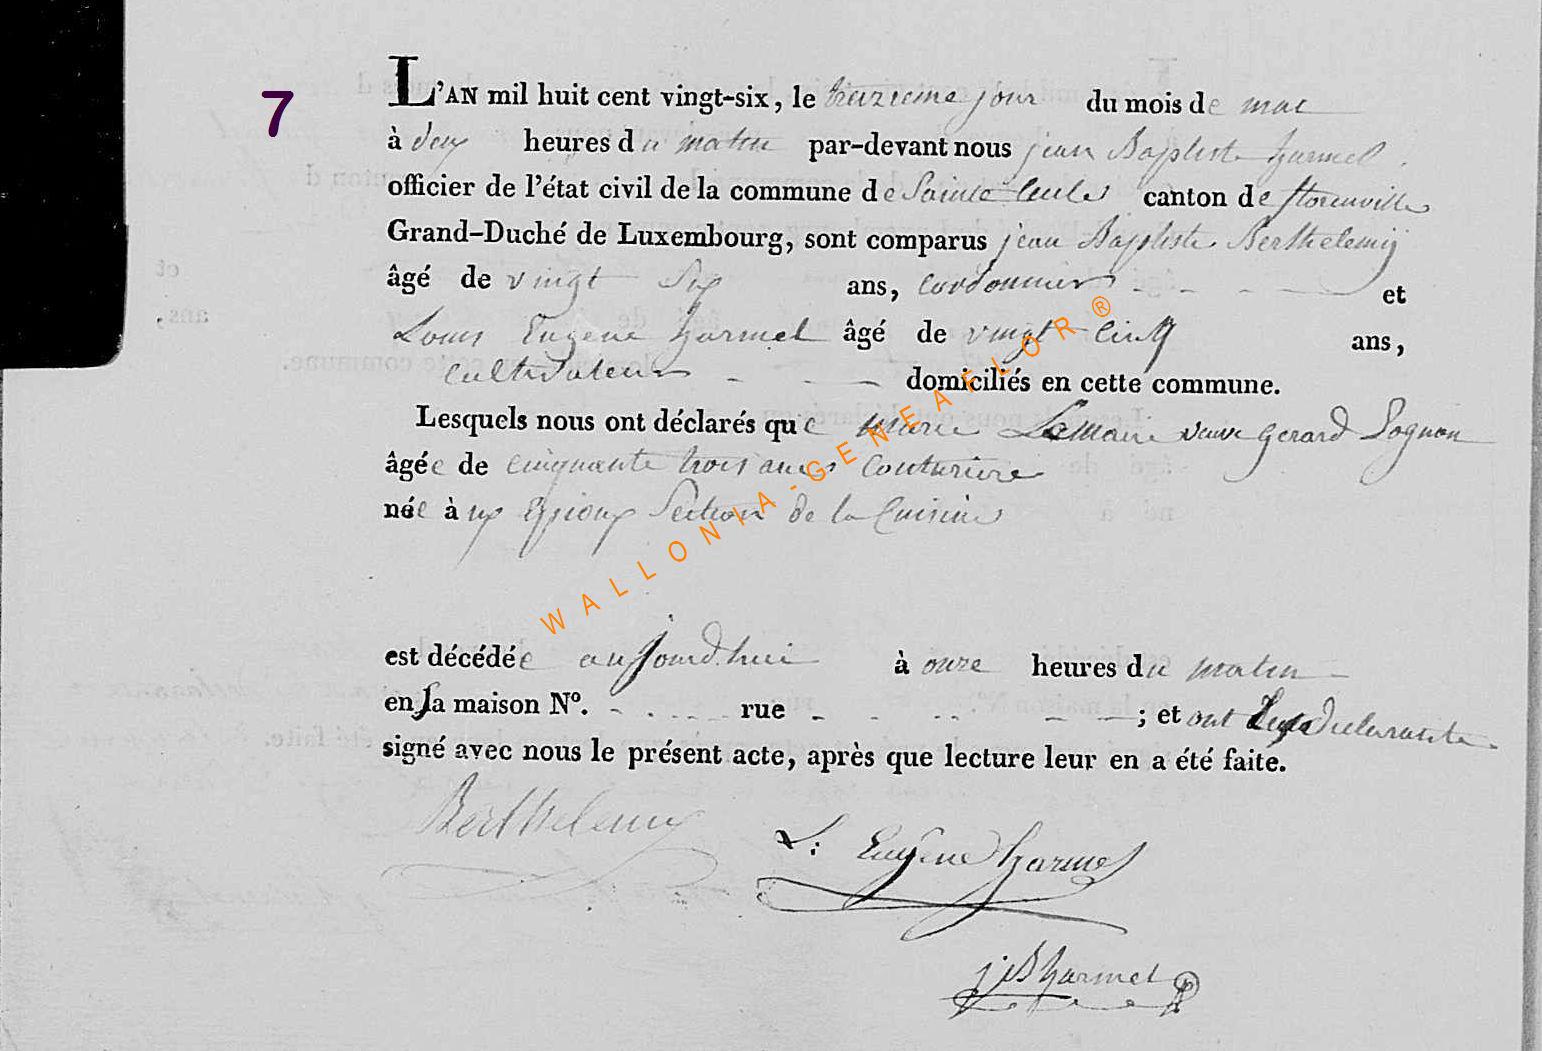 7
L'AN mil huit cent vingt-six, le treizieme jour du mois de mai
à deux heures du matin par-devant nous jean Baptiste harmel
officier de l'état civil de la commune de Sainte Cecile canton de florenville
Grand-Duché de Luxembourg, sont comparus jean Baptiste Berthelemy
âgé de vingt Six ans, cordonnier et
Louis Eugene harmel âgé de vingt Cinq ans,
Cultivateur domiciliés en cette commune.
Lesquels nous ont déclarés que Marie Lemaire veuve Gerard Lognon
âgée de cinquante trois ans Couturiere
née à Section de la Cuisine
est décédée aujourd'hui à onze heures du matin
en sa maison N°. rue ; et ont
signé avec nous le présent acte, après que lecture leur en a été faite.
Berthelemy
L: Eugène harmel
j B harmel
WALLONIA-GENEAFLOR®